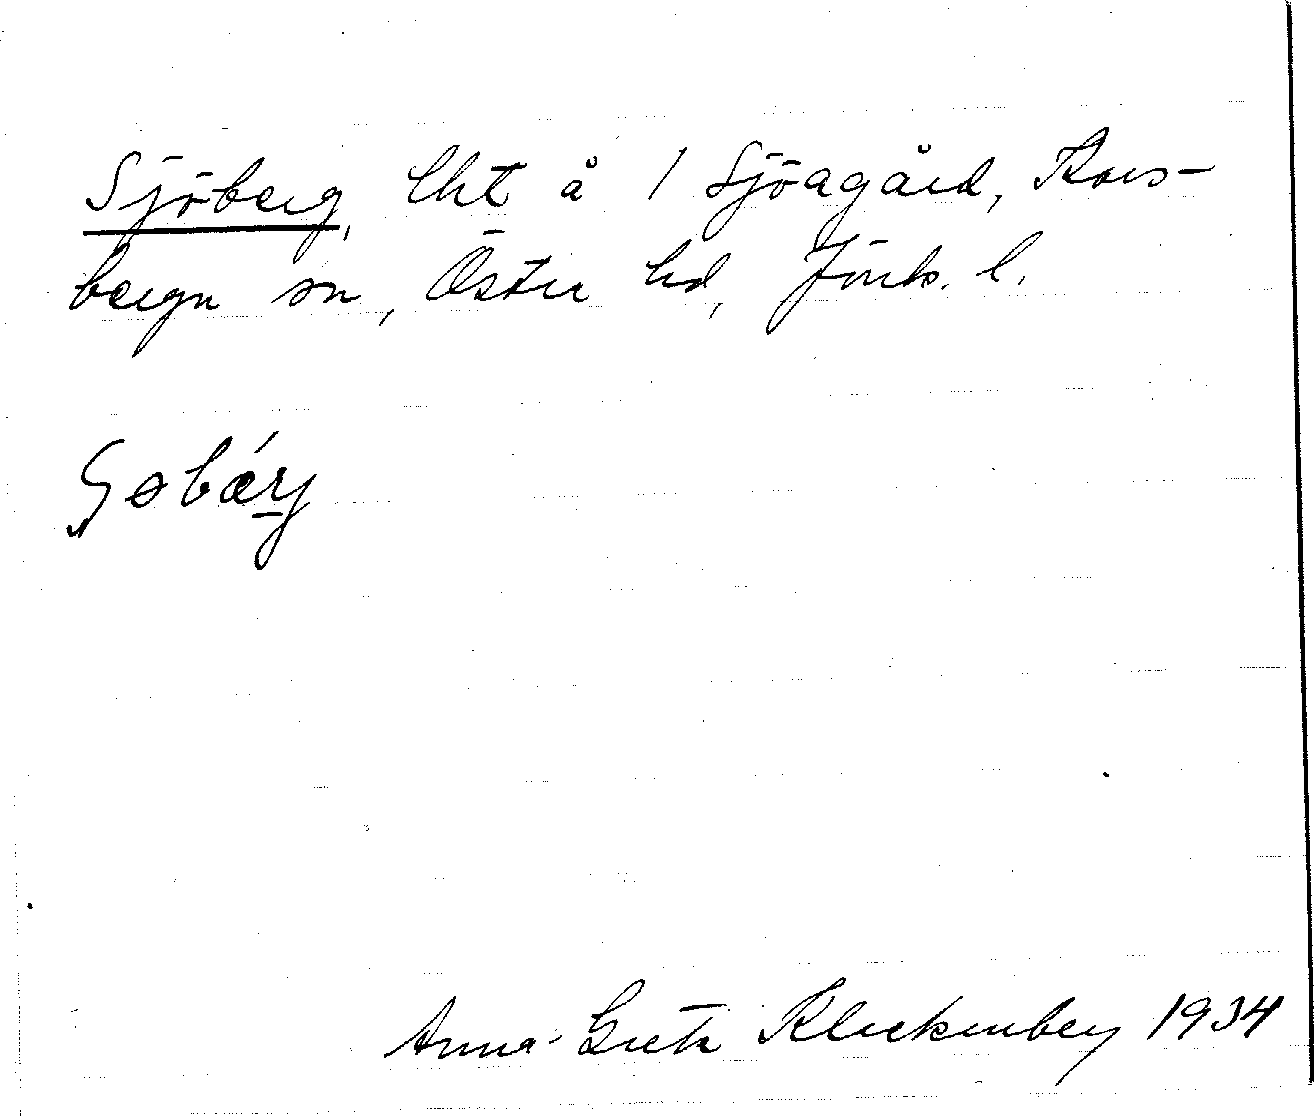 Sjöberg, lht å 1 Sjöagård, Kors-
berga sn, Östra hd, Jönk. l.
Anna-Greta Kleckenberg 1934